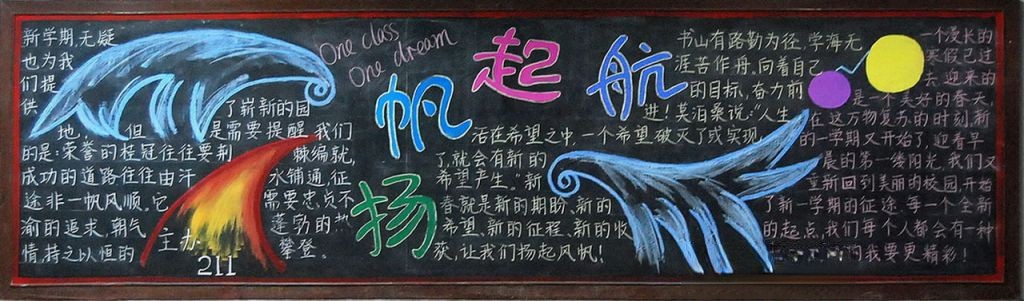 新学期,无疑
也为我
们提
供 了崭新的园
地,但 是需要提醒我们
的是:荣誉的桂冠往往要荆 棘编就,
成功的道路往往由汗 水铺通,征
途非一帆风顺。它 需要忠贞不
渝的追求,朝气 蓬勃的
情,持之以恒的 攀登。
主办
211
One class
One dream
扬帆起航
书山有路勤为径,学海无
涯苦作舟。向着自己
的目标、奋力前
进!莫泊桑说:“人生
活在希望之中,一个希望破灭了或实现
了,就会有新的
希望产生。新
春就是新的期盼、新的
希望、新的征程、新的收
获,让我们扬起风帆!
一个漫长的
寒假已过
去,迎来的
是一个美好的春天,
在这万物复苏的时刻,新
的一学期又开始了,迎着早
晨的第一缕阳光,我们又
重新回到美丽的校园,开始
了新一学期的征途,每一个全新
的起点,我们每个人都会有一种
我要更精彩!